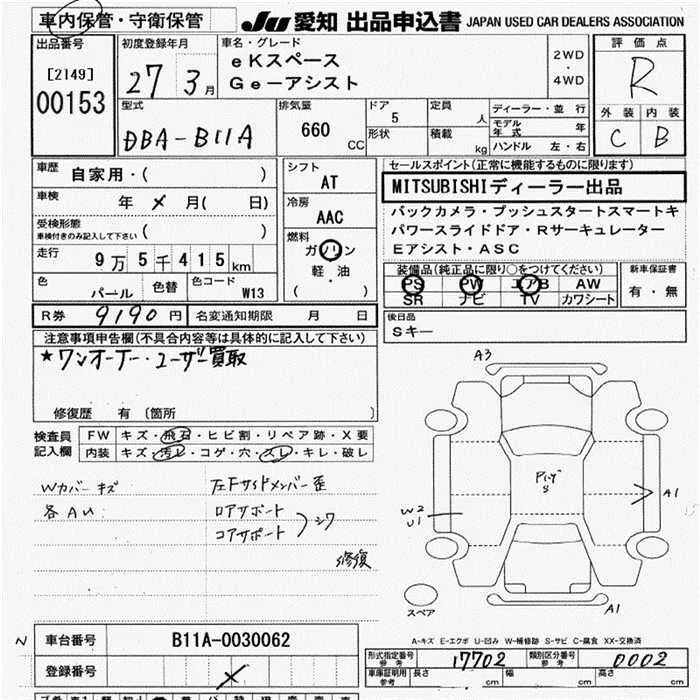 車内保管・守衛保管 JU 愛知 出品申込書 JAPAN USED CAR DEALERS ASSOCIATION
出品番号 初度登録年月 車名・グレード 評価点
[2149] 27 3月 eKスペース 2WD・4WD R
00153 Ge−アシスト
型式 排気量 ドア 定員 ディーラー・並行 外装 内装
DBA-B11A 660 CC 5 人 モデル年式 年 C B
形状 積載 kg ハンドル 左・右
車歴 自家用・( ) シフト AT セールスポイント(正常に機能するものに限ります)
車検 年 メ 月( 日) 冷房 AAC MITSUBISHIディーラー出品
受検形態 車検付きのみ記入して下さい ( ) バックカメラ・プッシュスタートスマートキ
走行 9万5千415km 燃料 ガソリン パワースライドドア・Rサーキュレーター
軽・油 Eアシスト・ASC
色 パール 色替 色コード W13 ( )
装備品(純正品に限り○をつけてください) 新車保証書
PS PW エアB AW 有・無
SR ナビ TV カワシート
R券 9190円 名変通知期限 月 日 後日品
Sキー
注意事項申告欄(不具合内容等は具体的に記入して下さい)
★ワンオーナー・ユーザー買取
修復歴 有 〔箇所 〕
検査員記入欄 FW キズ・飛石・ヒビ割・リペア跡・X要
内装 キズ・汚レ・コゲ・穴・スレ・キレ・破レ
Wカバーキズ 左Fサイドメンバー歪
各AU ロアサポート
コアサポート シワ
修復
A3
A1
W2
U1
A1
スペア
A-キズ E-エクボ U-凹み W-補修跡 S-サビ C-腐食 XX-交換済
N 車台番号 B11A-0030062
登録番号 メ
形式指定番号 参考 17702 類別区分番号 参考 0002
車庫証明用 参考 長さ cm 幅 cm 高さ cm